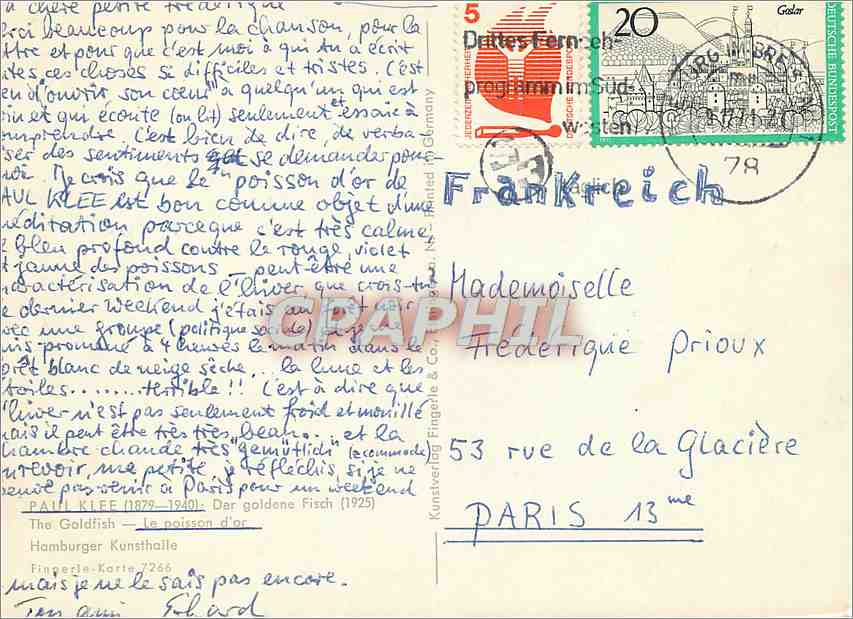 chère petite Frédérique
beaucoup pour la chanson, pour la
et pour que c'est moi à qui tu a écrit
ces choses si difficiles et tristes. C'est
d'ouvrir son cœur à quelqu'un qui est
et qui écoute (ou lit) seulement et essaie à
C'est bien de dire de verba-
ser des sentiments se demander pour-
Je crois que le "poisson d'or de
PAUL KLEE est bon comme objet d'une
méditation parceque c'est très calme,
bleu profond contre le rouge, violet
jaune des poissons — peut-être une
caractérisation de l'hiver, que crois-tu
dernier weekend j'étais au forêt noir
avec une groupe (politique sociale) et je me
suis promené à 4 heures le matin dans le
forêt blanc de neige sêche,.. la lune et les
étoiles........terrible!! C'est à dire que
l'hiver n'est pas seulement froid et mouillé
mais il peut être très très beau... et la
chambre chaude très "gemütlich" (accommode)
aurevoir, ma petite je réfléchis, si je ne
peuve pas venir à Paris pour un weekend
PAUL KLEE (1879—1940): Der goldene Fisch (1925)
The Goldfish — Le poisson d'or
Hamburger Kunsthalle
Fingerle-Karte 7266
mais je ne le sais pas encore.
Ton ami Erhard
Kunstverlag Fingerle & Co., Printed in Germany
5
JEDERZEIT SICHERHEIT
DEUTSCHE BUNDESPOST
20
Goslar
DEUTSCHE BUNDESPOST
Drittes Fernseh-
programm im Süd-
westen
täglich
78
Frankreich
Mademoiselle
Fréderique Prioux
53 rue de la Glacière
PARIS 13me
CPAPHIL